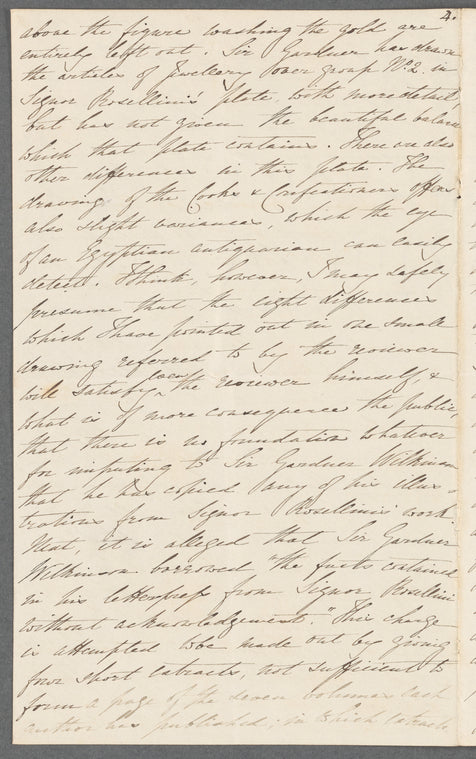 2.
above the figure washing the gold are
entirely left out. Sir Gardner has drawn
the articles of Jewellery over group No. 2. in
Signor Rosellini's plate, with more detail,
but has not given the beautiful balance
which that plate contains. There are also
other differences in this plate. The
drawing of the Cooks & Confectioners offers
also slight variances, which the eye
of an Egyptian antiquarian can easily
detect. I think, however, I may safely
presume that the eight differences
which I have pointed out in one small
drawing referred to by the reviewer
will satisfy even the reviewer himself, &
what is of more consequence the public,
that there is no foundation whatever
for imputing to Sir Gardner Wilkinson
that he has copied any of his illus-
trations from Signor Rosellini's work.
Next, it is alleged that Sir Gardner
Wilkinson borrowed "the facts contained
in his letterpress from Signor Rosellini
without acknowledgement." This charge
is attempted to be made out by giving
four short extracts, not sufficient to
form a page of the seven volumes each
author has published; in which extracts